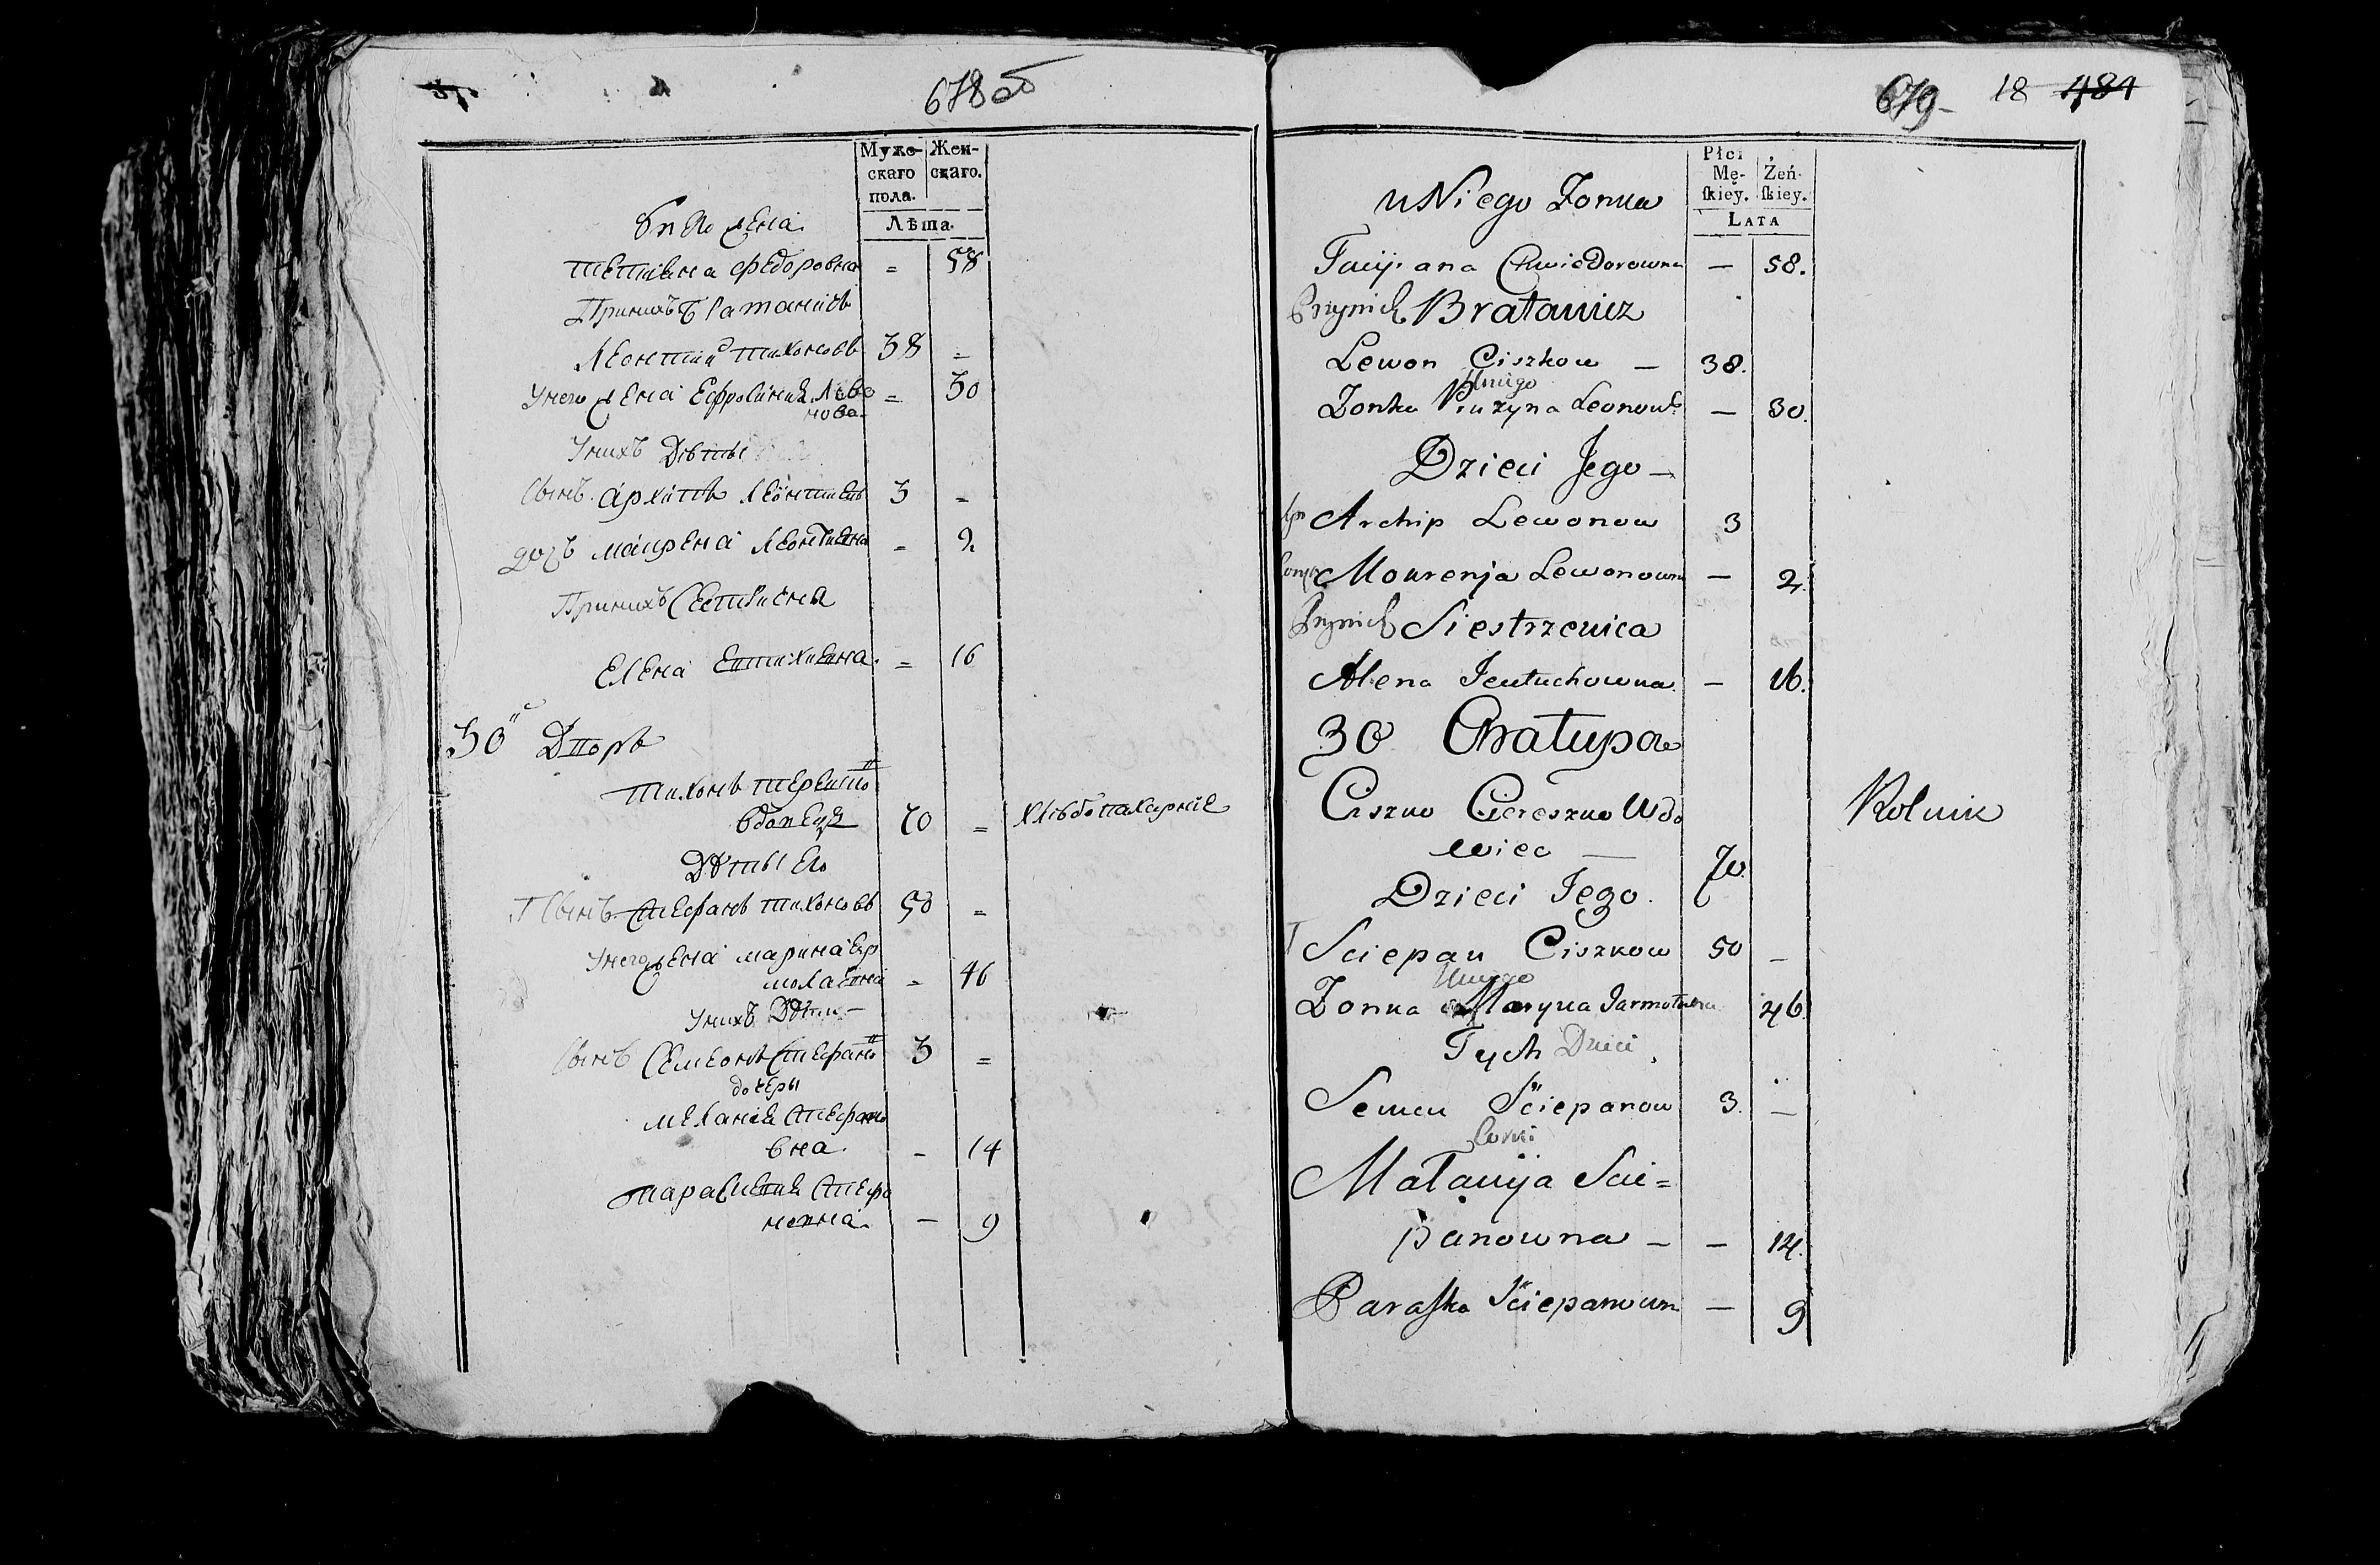 678об
Мужескаго пола.
Женскаго.
Лѣта.
жена
Тетиана Федоровна = 58
При нихъ Братаничь
Леонтий Тихоновъ 38 =
У него жена Ефросиния Лево
нова = 30
У нихъ Дѣти
Сынъ Архипъ Леонтиевъ 3 =
дочь Маврена Леонтиевна = 2
При нихъ Сестричена
Елена Евтихиевна = 16
30й Дворъ
Тихонъ Терентиевъ
вдовецъ 70 = Хлѣбопахарние
Дѣти Его
1 Сынъ Стефанъ Тихоновъ 50 =
У него жена Марина Ер
молаевна = 46
У нихъ Дѣти
Сынъ Семионъ Стефановъ 3 =
дочеры
Мелания Стефано
вна - 14
Парасиевия Стефа
новна - 9
679 18 481
Płci Męskiey.
Żeńskiey.
LATA
u Niego Zonka
Taciiana Chwiedorowna — 58.
Przy nich Bratanicz
Lewon Ciszkow — 38.
U niego
Zonka Pruzyna Leonow — 30.
Dzieci Jego —
Syn Archip Lewonow 3
Corka Mourenja Lewonowna — 2.
Przy nich Siestrzenica
Alena Jeutuchowna — 16.
30 Chałupa
Ciszko Ciereszko Wdo
wiec — 70. Rolnik
Dzieci Jego.
1 Sciepan Ciszkow 50 —
U niego
Zonka Maryna Jarmołowna 46
Tych Dzieci
Semen Sciepanow 3. —
Corki
Małanija Scie=
panowna — — 14.
Paraska Sciepanowna — 9